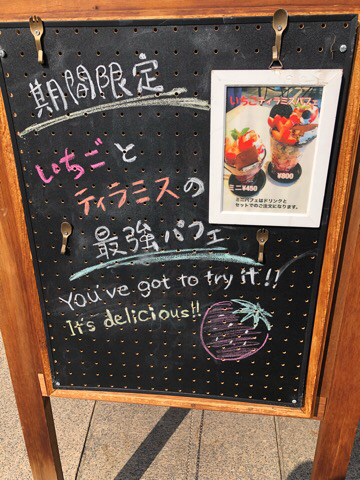 期間限定
いちごと
ティラミスの
最強パフェ
You've got to try it!!
It's delicious!!
いちごティラミスパフェ
ミニ¥450
¥800
ミニパフェはドリンクと
セットでのご注文になります。